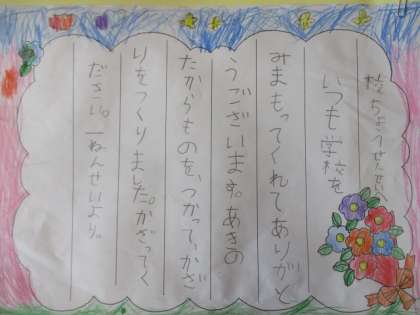 校ちょうせんせいへ
いつも学校を
みまもってくれてありがと
うございます。あきの
たからものを、つかって、かざ
りをつくりました。かざってく
ださい。一ねんせいより。